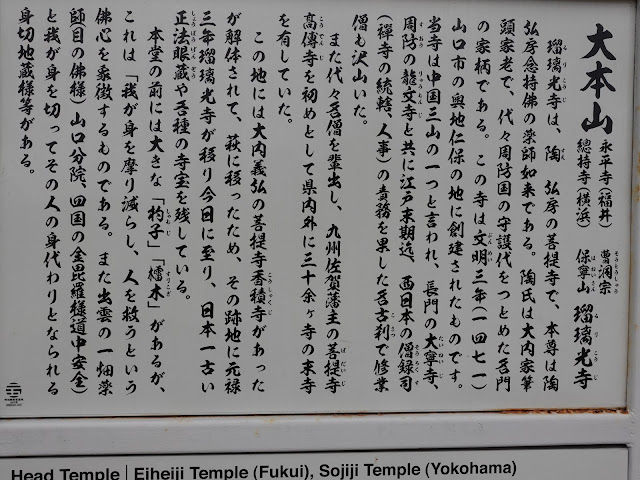 大本山 永平寺(福井)
總持寺(横浜)
曹洞宗
保寧山 瑠璃光寺
瑠璃光寺は、陶 弘房の菩提寺で、本尊は陶
弘房念持佛の薬師如来である。陶氏は大内家筆
頭家老で、代々周防国の守護代をつとめた名門
の家柄である。この寺は文明三年(一四七一)
山口市の奥地仁保の地に創建されたものです。
当寺は中国三山の一つと言われ、長門の大寧寺、
周防の龍文寺と共に江戸末期迄、西日本の僧録司
(禅寺の統轄、人事)の責務を果した名古刹で修業
僧も沢山いた。
また代々名僧を輩出し、九州佐賀藩主の菩提寺
高傳寺を初めとして県内外に三十余ヶ寺の末寺
を有していた。
この地には大内義弘の菩提寺香積寺があった
が解体されて、萩に移ったため、その跡地に元禄
三年瑠璃光寺が移り今日に至り、日本一古い
正法眼蔵や各種の寺宝を残している。
本堂の前には大きな「杓子」「擂木」があるが、
これは「我が身を摩り減らし、人を救うという
佛心を象徴するものである。また出雲の一畑薬
師目の佛様)山口分院、四国の金毘羅様道中安全)
と我が身を切ってその人の身代わりとなられる
身切地蔵様等がある。
Head Temple | Eiheiji Temple (Fukui), Sojiji Temple (Yokohama)